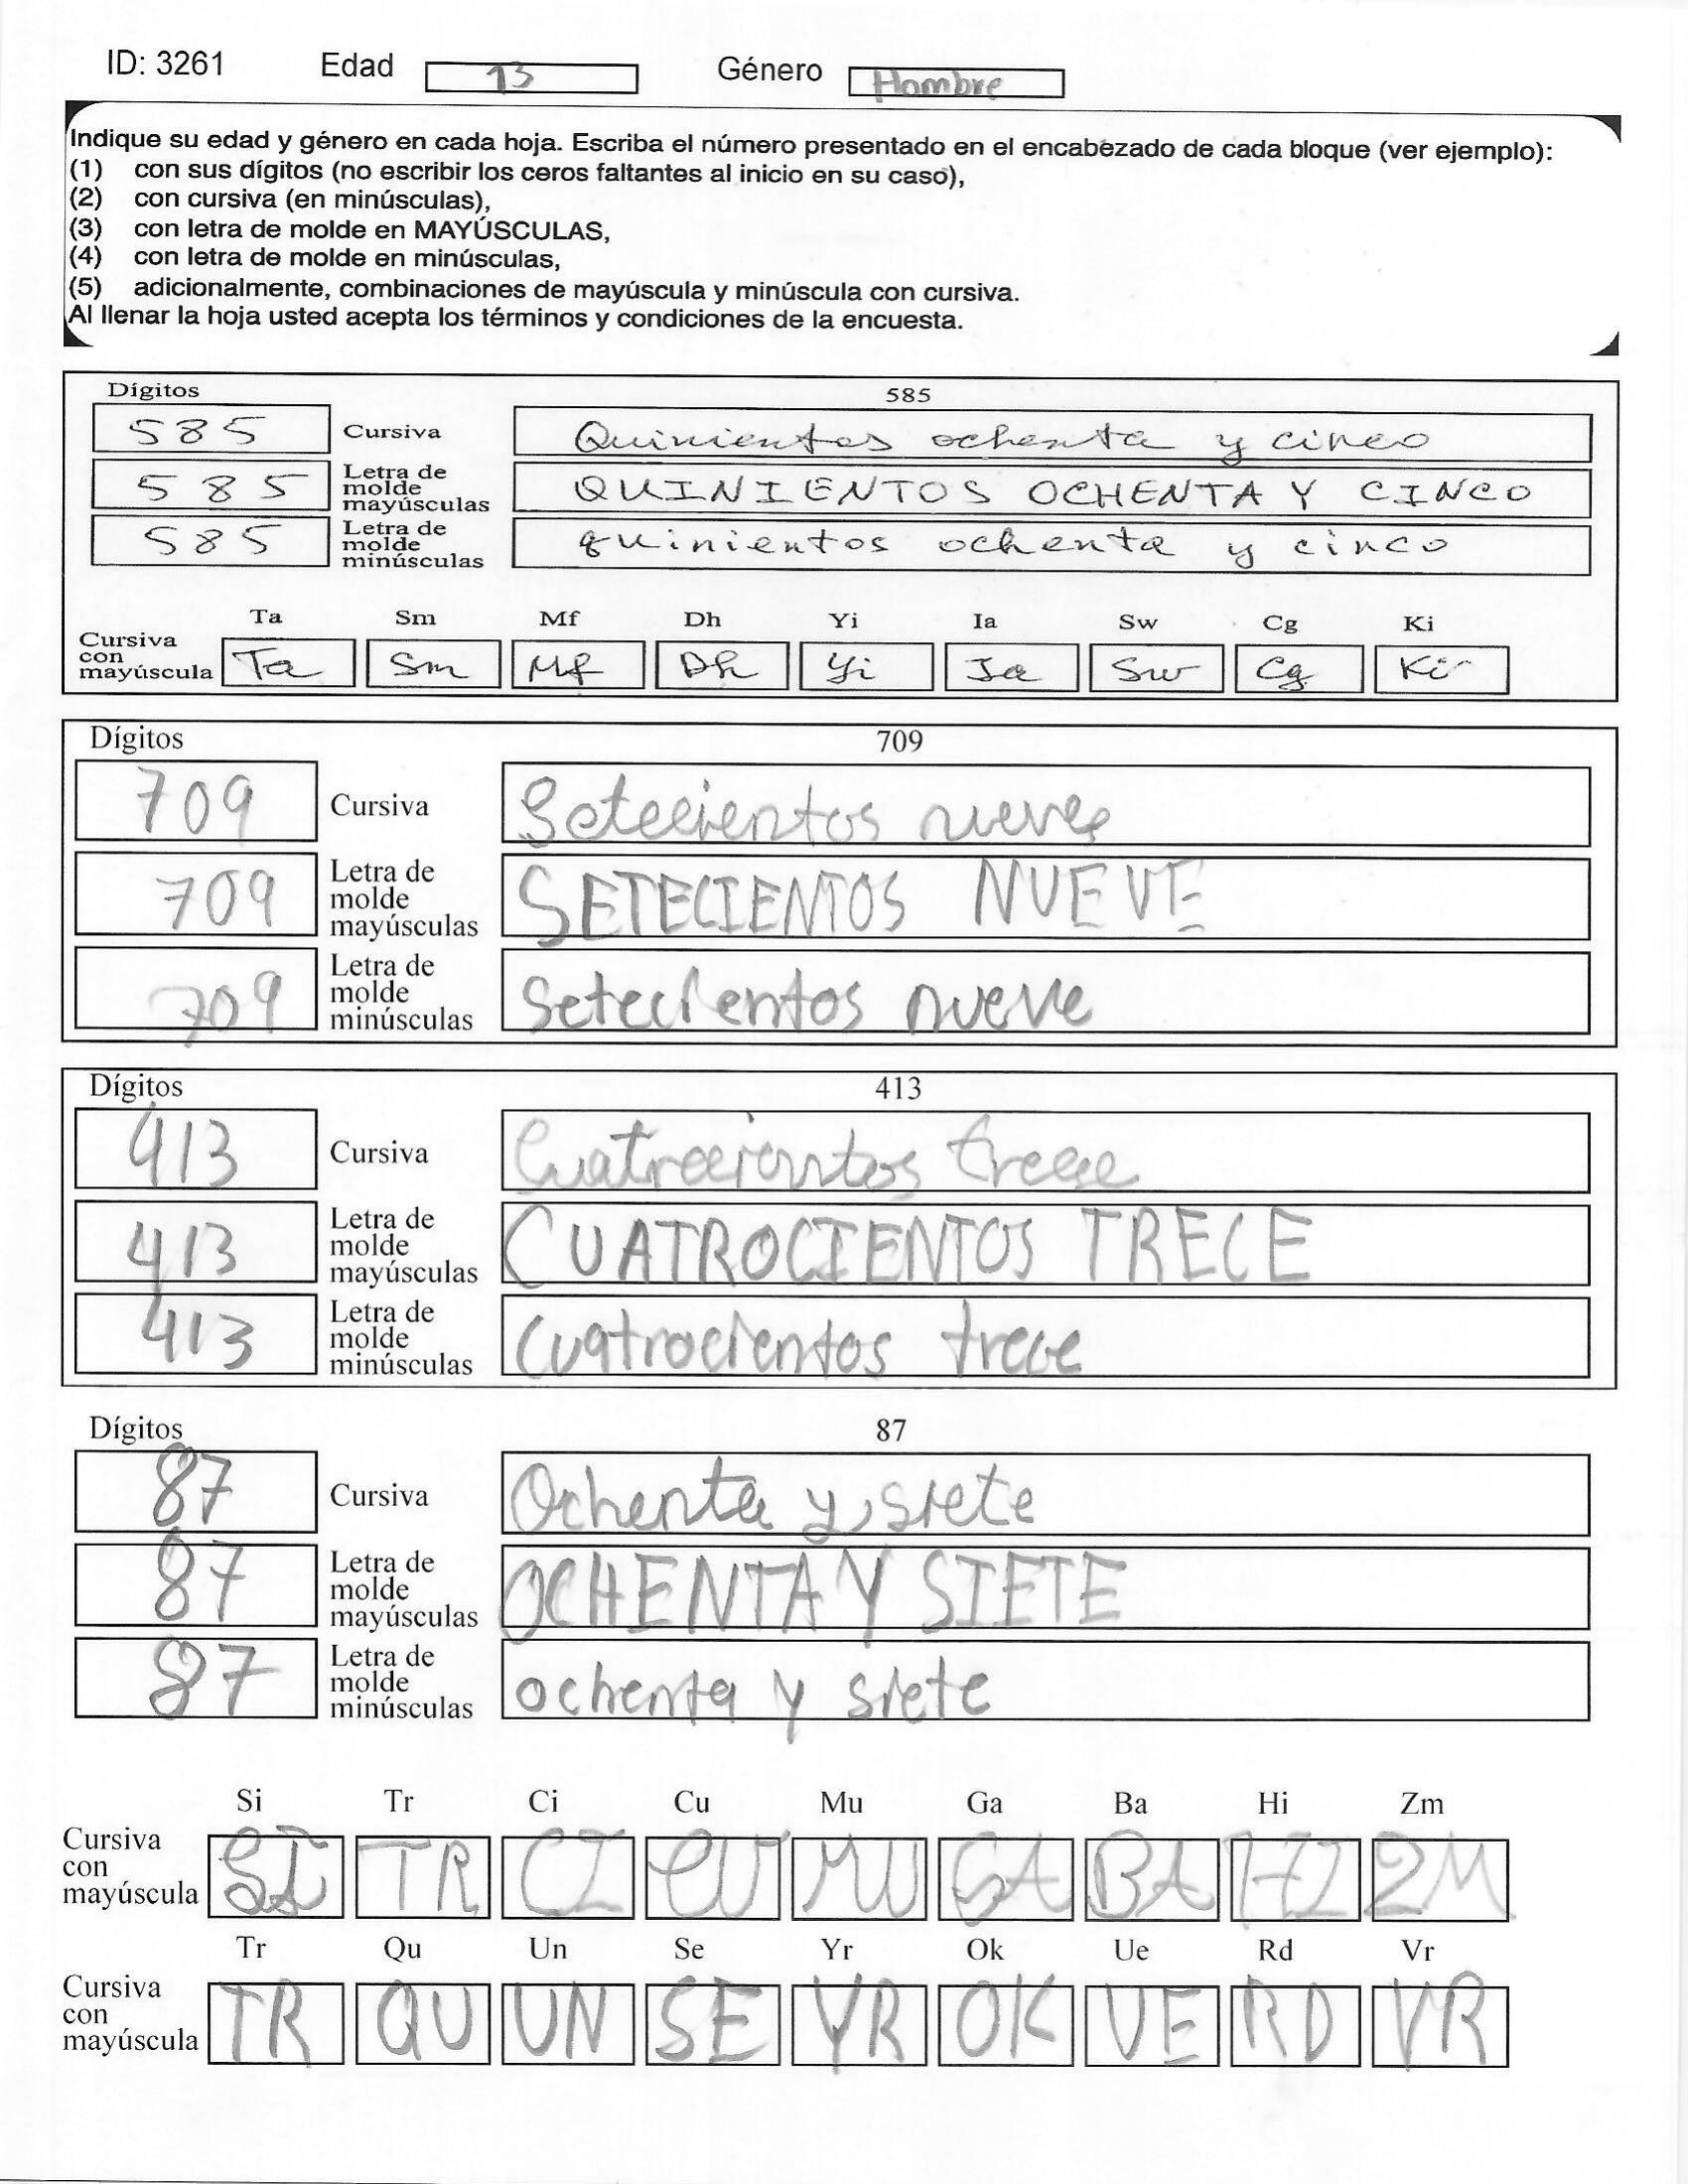 ID: 3261 Edad 13 Género Hombre
Indique su edad y género en cada hoja. Escriba el número presentado en el encabezado de cada bloque (ver ejemplo):
(1) con sus dígitos (no escribir los ceros faltantes al inicio en su caso),
(2) con cursiva (en minúsculas),
(3) con letra de molde en MAYÚSCULAS,
(4) con letra de molde en minúsculas,
(5) adicionalmente, combinaciones de mayúscula y minúscula con cursiva.
Al llenar la hoja usted acepta los términos y condiciones de la encuesta.
Dígitos 585
585 Cursiva Quinientos ochenta y cinco
585 Letra de molde mayúsculas QUINIENTOS OCHENTA Y CINCO
585 Letra de molde minúsculas quinientos ochenta y cinco
Ta Sm Mf Dh Yi Ia Sw Cg Ki
Cursiva con mayúscula Ta Sm Mf Dh Yi Ia Sw Cg Ki
Dígitos 709
709 Cursiva Setecientos nueve
709 Letra de molde mayúsculas SETECIENTOS NUEVE
709 Letra de molde minúsculas Setecientos nueve
Dígitos 413
413 Cursiva Cuatrocientos trece
413 Letra de molde mayúsculas CUATROCIENTOS TRECE
413 Letra de molde minúsculas cuatrocientos trece
Dígitos 87
87 Cursiva Ochenta y siete
87 Letra de molde mayúsculas OCHENTA Y SIETE
87 Letra de molde minúsculas ochenta y siete
Si Tr Ci Cu Mu Ga Ba Hi Zm
Cursiva con mayúscula SI TR CI CU MU GA BA HI ZM
Tr Qu Un Se Yr Ok Ue Rd Vr
Cursiva con mayúscula TR QU UN SE YR OK UE RD VR